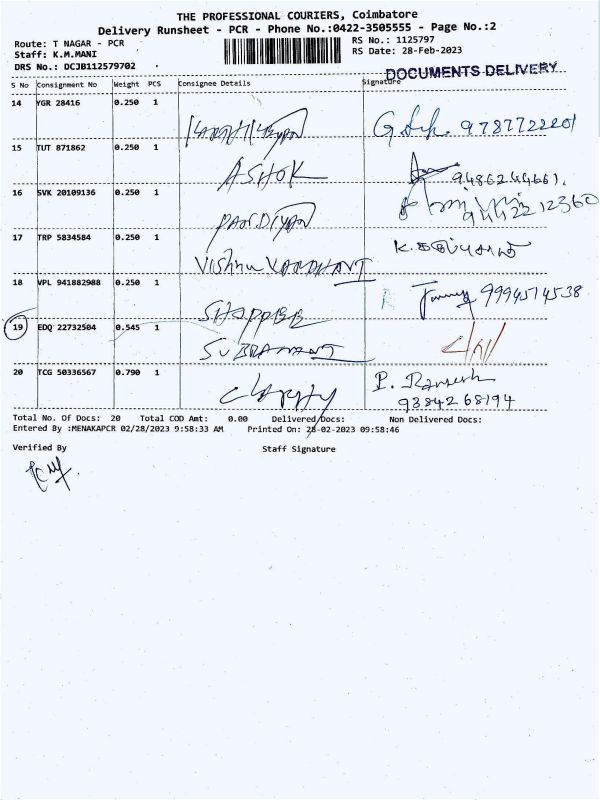 THE PROFESSIONAL COURIERS, Coimbatore
Delivery Runsheet - PCR - Phone No.:0422-3505555 - Page No.:2
Route: T NAGAR - PCR
RS No.: 1125797
Staff: K.M.MANI
RS Date: 28-Feb-2023
DRS No.: DCJB112579702
DOCUMENTS DELIVERY
S No Consignment No Weight PCS Consignee Details Signature
14 YGR 28416 0.250 1
9787722201
15 TUT 871862 0.250 1
ASHOK 9486244661.
16 SVK 20109136 0.250 1
PANDIYAN 9442212360
17 TRP 5834584 0.250 1
VISHNU VARDHANI
18 VPL 941882988 0.250 1
SHAPPEE 9994514538
19 EDQ 22732504 0.545 1
SUBRAMANI
20 TCG 50336567 0.790 1
CLARITY P. Ramesh
9384268194
Total No. Of Docs: 20 Total COD Amt: 0.00 Delivered Docs: Non Delivered Docs:
Entered By :MENAKAPCR 02/28/2023 9:58:33 AM Printed On: 28-02-2023 09:58:46
Verified By Staff Signature